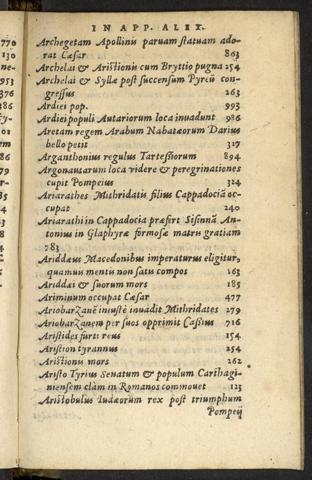 IN APP. ALEX.
Archegetam Apollinis paruam statuam ado-
rat Cæsar 863
Archelai & Aristionis cum Bryttio pugna 254
Archelai & Syllæ post succensum Pyreũ con-
gressus 263
Ardiei pop. 993
Ardiei populi Autariorum loca inuadunt 986
Aretam regem Arabum Nabatæorum Darius
bello petit 327
Arganthonius regulus Tartessiorum 894
Argonautarum loca videre & peregrinationes
cupit Pompeius 324
Ariarathes Mithridatis filius Cappadociã oc-
cupat 240
Ariarathi in Cappadocia præfert Sisinnã An-
tonius in Glaphyræ formosæ matris gratiam
783
Ariddæus Macedonibus imperaturus eligitur,
quamuis mentis non satis compos 163
Ariddæi & suorum mors 185
Ariminum occupat Cæsar 477
Ariobarzanẽ iniustè inuadit Mithridates 279
Ariobarzanem per suos opprimit Cassius 716
Aristides furti reus 154
Aristion tyrannus 254
Aristionis mors 262
Aristo Tyrius Senatum & populum Carthagi-
niensem clàm in Romanos commouet 123
Aristobulus Iudæorum rex post triumphum
Pompeij